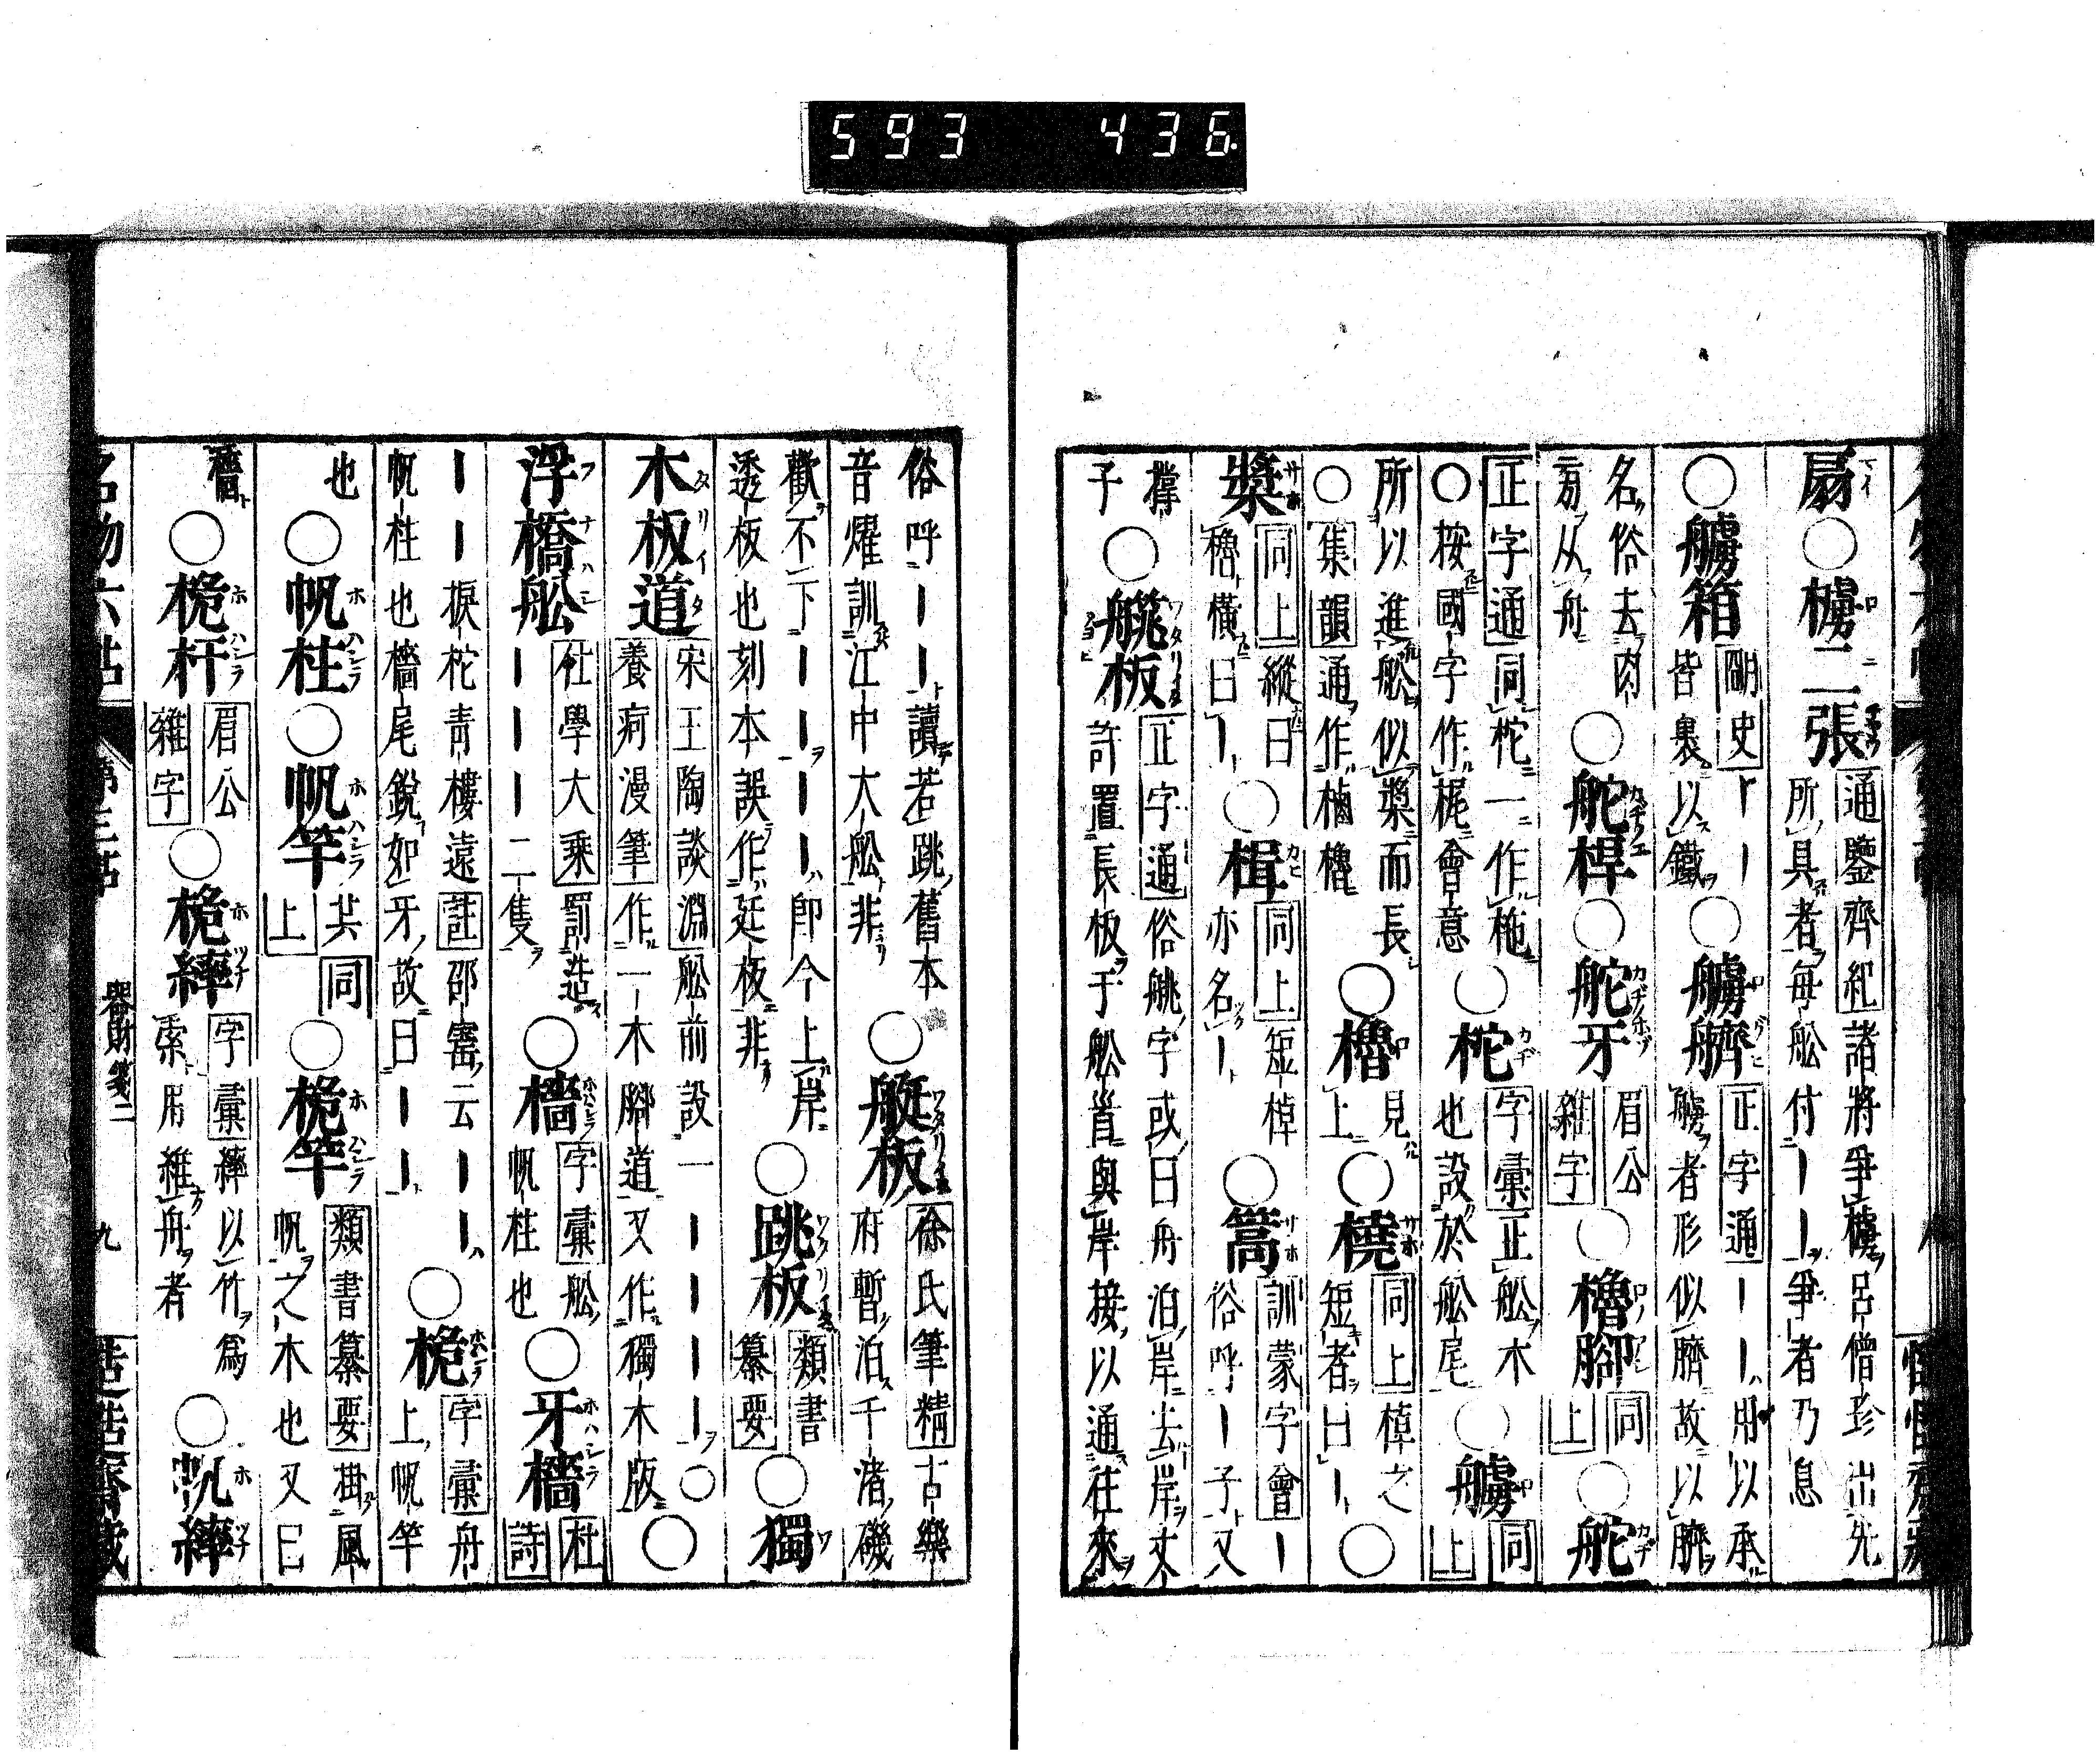 593 436
扇○櫓二張 通鑒齊紀 諸將爭櫓呂僧珍出先
所具者每舩付｜｜爭者乃息
○艣箱 明史｜｜
皆裏以鐵○艣臍 正字通｜｜用以承
艣者形似臍故以臍
名俗去肉
旁从舟○舵桿○舵牙 眉公
雜字○櫓脚 同
上○舵
正字通 同柁一作柂
○按國字作梶會意○柁 字彙 正舩木
也設於舩尾○艣 同
上
所以進舩似槳而長
○集韻通作樐櫓○櫓 見
上○橈 同上 棹之
短者曰｜○
槳 同上 縱曰
櫓橫曰｜○楫 同上 短棹
亦名｜○篙 訓蒙字會｜
俗呼｜子又
撐
子○艞板 正字通 俗艞字或曰舟泊岸去岸丈
許置長板于舩首與岸接以通往來
俗呼｜｜讀若跳舊本○艇板 徐氏筆精 古樂
音燿訓江中大舩非 府暫泊千渚磯
歡不下｜｜｜｜即今上岸○跳板 類書
透板也刻本誤作廷板非 纂要○獨
木板道 宋王陶談淵 舩前設一｜｜｜｜○
養疴漫筆 作一木腳道又作獨木版○
浮橋舩 杜學大乘 罰造
｜｜｜｜二隻○檣 字彙 舩
帆柱也○牙檣 杜
詩
｜｜捩柁青樓遠 註 邵寶云｜｜
帆柱也檣尾銳如牙故曰｜｜○桅 字彙 舟
上帆竿
也○帆柱○帆竿 共同
上○桅竿 類書纂要 掛風
帆之木也又曰
檣○桅杆 眉公
雜字○桅繂 字彙 繂以竹爲
索用維舟者○帆繂
名物六帖 第三帖 器財箋二 九